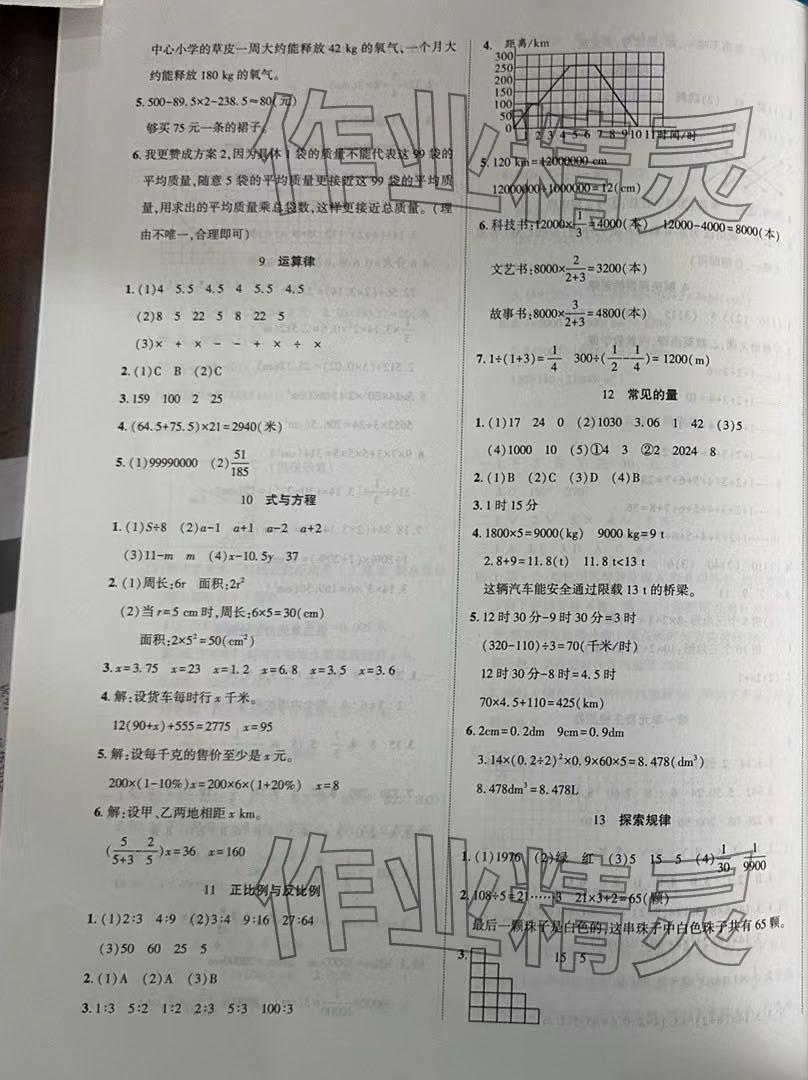 中心小学的草皮一周大约能释放 42 kg 的氧气,一个月大
约能释放 180 kg 的氧气。
5. 500-89.5×2-238.5≈80(元)
够买 75 元一条的裙子。
6. 我更赞成方案 2,因为具体 1 袋的质量不能代表这 99 袋的
平均质量,随意 5 袋的平均质量更接近这 99 袋的平均质
量,用求出的平均质量乘总袋数,这样更接近总质量。(理
由不唯一,合理即可)
9 运算律
1. (1)4 5.5 4.5 4 5.5 4.5
(2)8 5 22 5 8 22 5
(3)× + × - + × ÷ ×
2. (1)C B (2)C
3. 159 100 2 25
4. (64.5+75.5)×21=2940(米)
5. (1)99990000 (2)51/185
10 式与方程
1. (1)S÷8 (2)a-1 a+1 a-2 a+2
(3)11-m m (4)x-10.5y 37
2. (1)周长:6r 面积:2r²
(2)当 r=5 cm 时,周长:6×5=30(cm)
面积:2×5²=50(cm²)
3. x=3.75 x=23 x=1.2 x=6.8 x=3.5 x=3.6
4. 解:设货车每时行 x 千米。
12(90+x)+555=2775 x=95
5. 解:设每千克的售价至少是 x 元。
200×(1-10%)x=200×6×(1+20%) x=8
6. 解:设甲、乙两地相距 x km。
(5/5+3-2/5)x=36 x=160
11 正比例与反比例
1. (1)2∶3 4∶9 (2)3∶4 9∶16 27∶64
(3)50 60 25 5
2. (1)A (2)A (3)B
3. 1∶3 5∶2 1∶2 2∶3 5∶3 100∶3
4. 距离/km
300
250
200
150
100
50
0 1 2 3 4 5 6 7 8 9 10 11 时间/时
5. 120 km=12000000 cm
12000000÷1000000=12(cm)
6. 科技书:12000×1/3=4000(本) 12000-4000=8000(本)
文艺书:8000×2/2+3=3200(本)
故事书:8000×3/2+3=4800(本)
7. 1÷(1+3)=1/4 300÷(1/2-1/4)=1200(m)
12 常见的量
1. (1)17 24 0 (2)1030 3.06 1 42 (3)5
(4)1000 10 (5)①4 3 ②2 2024 8
2. (1)B (2)C (3)D (4)B
3. 1 时 15 分
4. 1800×5=9000(kg) 9000 kg=9 t
2.8+9=11.8(t) 11.8 t<13 t
这辆汽车能安全通过限载 13 t 的桥梁。
5. 12 时 30 分-9 时 30 分=3 时
(320-110)÷3=70(千米/时)
12 时 30 分-8 时=4.5 时
70×4.5+110=425(km)
6. 2cm=0.2dm 9cm=0.9dm
3.14×(0.2÷2)²×0.9×60×5=8.478(dm³)
8.478dm³=8.478L
13 探索规律
1. (1)1976 (2)绿 红 (3)5 15 5 (4)1/30 1/9900
2. 108÷5=21……3 21×3+2=65(颗)
最后一颗珠子是白色的,这串珠子中白色珠子共有 65 颗。
3. 15 5
作业精灵
作业精灵